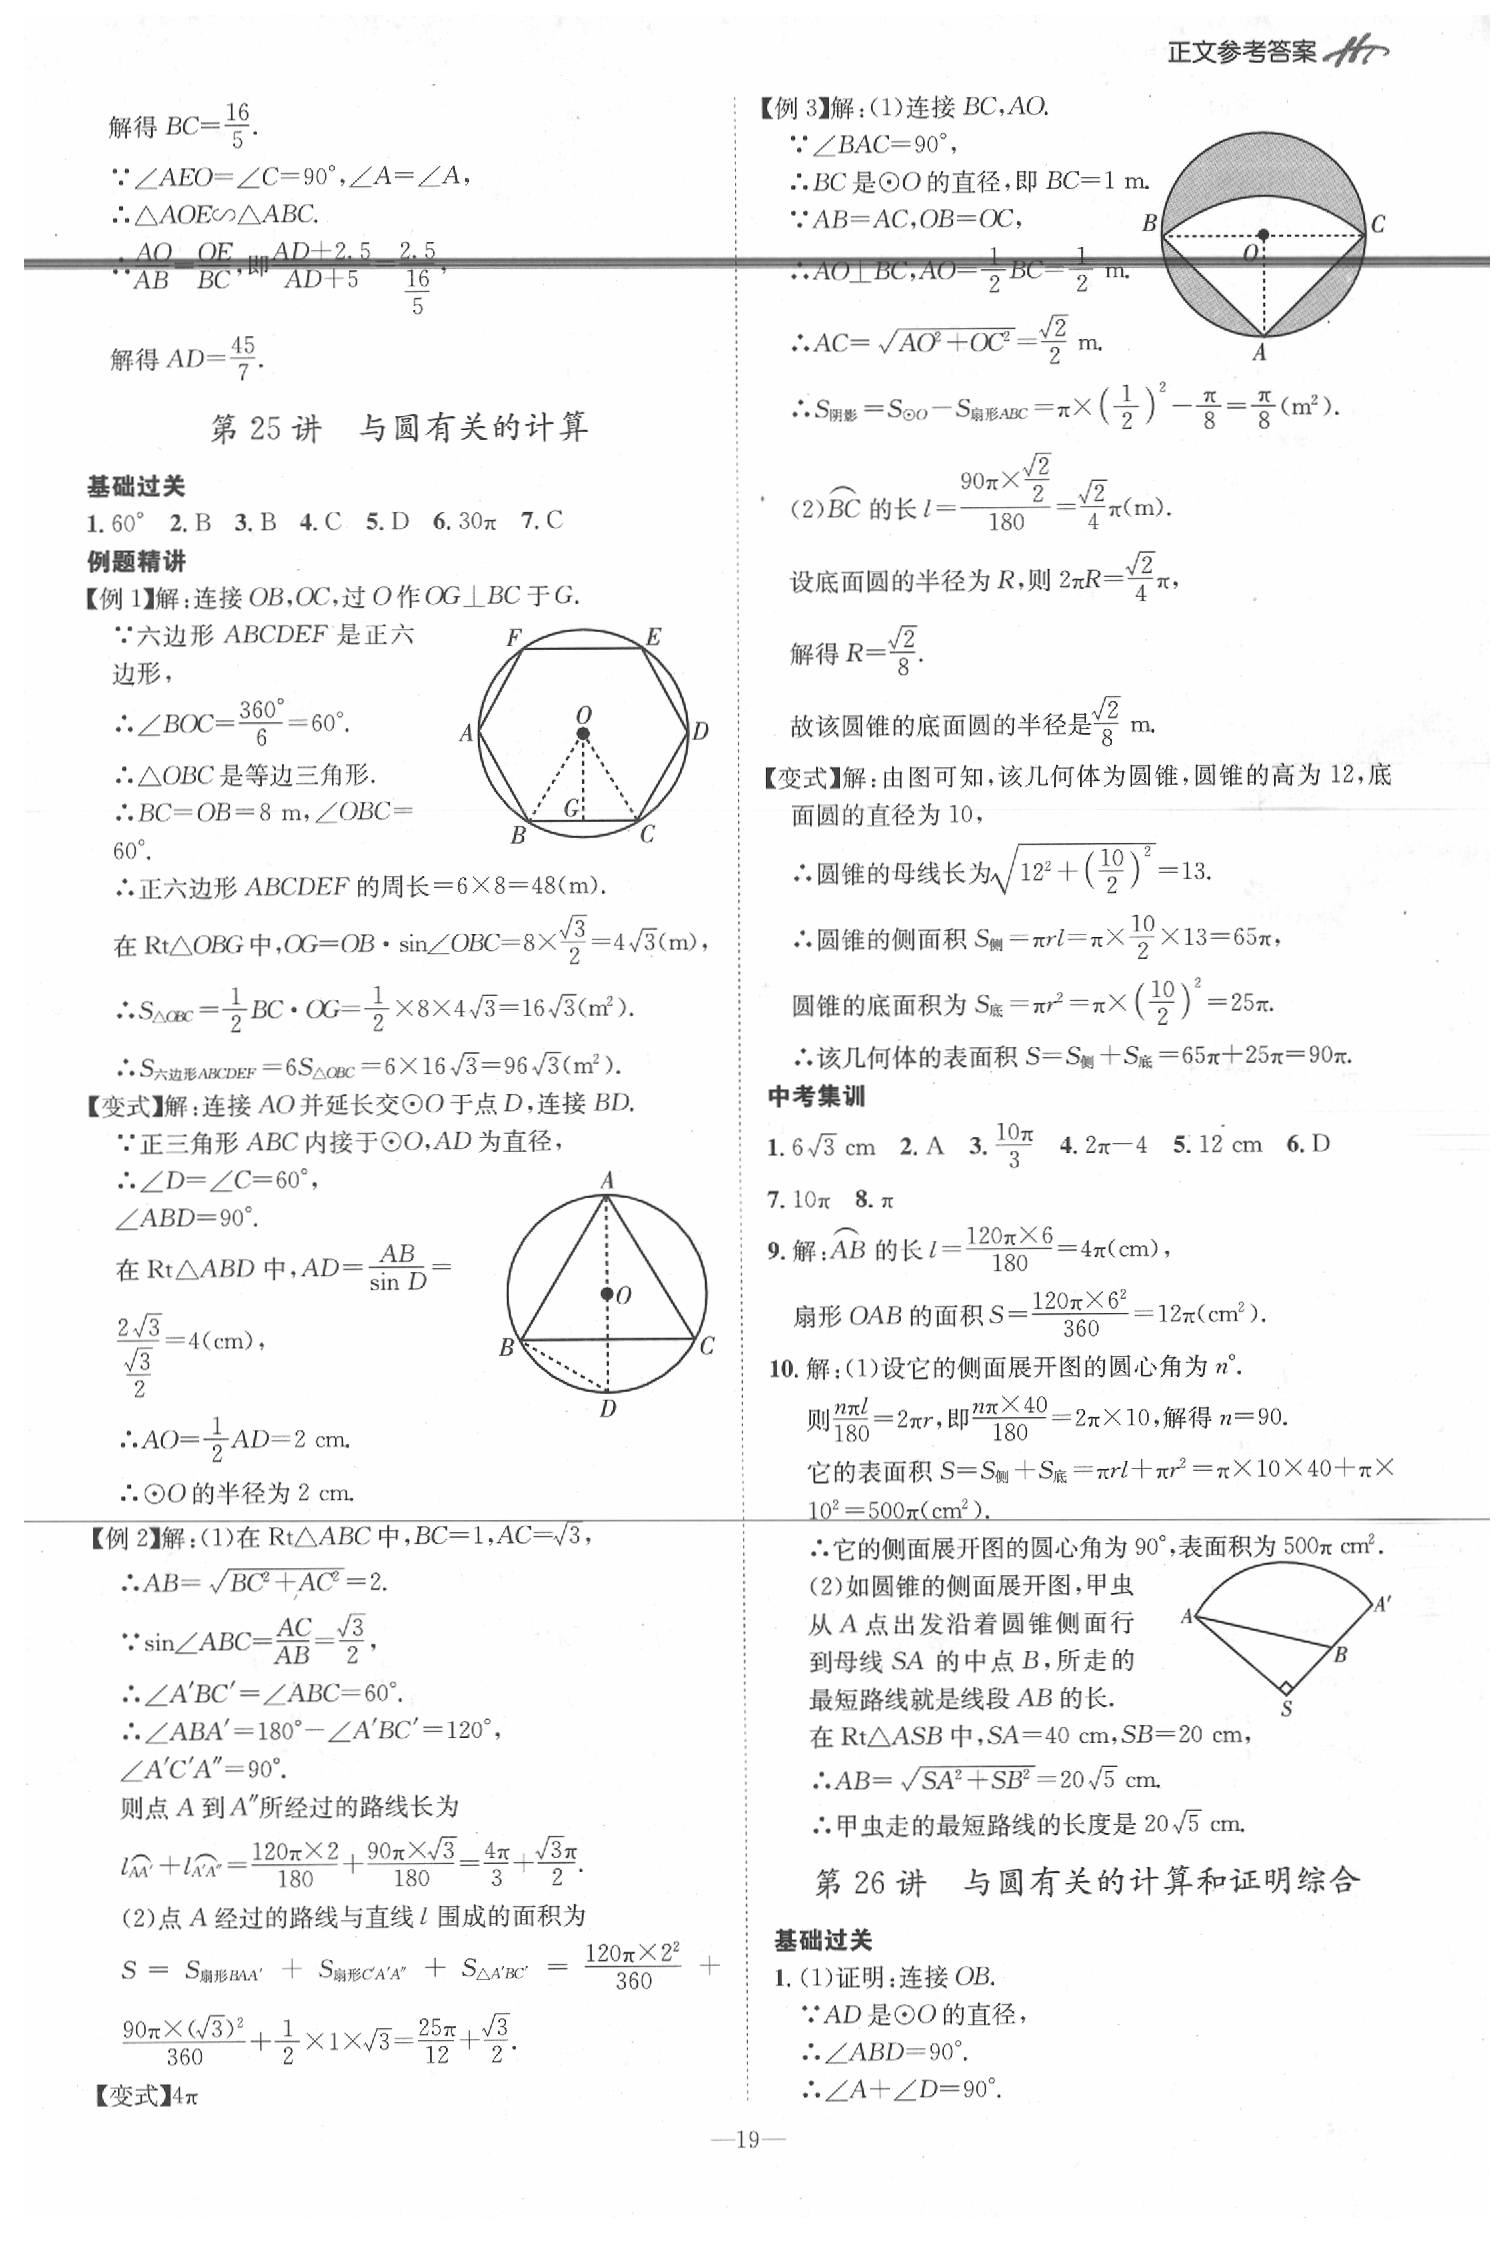 正文参考答案
解得 BC=16/5.
∵∠AEO=∠C=90°,∠A=∠A,
∴△AOE∽△ABC.
∴AO/AB=OE/BC,即(AD+2.5)/(AD+5)=2.5/(16/5),
解得 AD=45/7.
第 25 讲 与圆有关的计算
基础过关
1. 60° 2. B 3. B 4. C 5. D 6. 30π 7. C
例题精讲
【例 1】解:连接 OB,OC,过 O 作 OG⊥BC 于 G.
∵六边形 ABCDEF 是正六
边形,
∴∠BOC=360°/6=60°.
∴△OBC 是等边三角形.
∴BC=OB=8 m,∠OBC=
60°.
F E A O D G B C
∴正六边形 ABCDEF 的周长=6×8=48(m).
在 Rt△OBG 中,OG=OB·sin∠OBC=8×√3/2=4√3(m),
∴S△OBC=1/2 BC·OG=1/2×8×4√3=16√3(m²).
∴S六边形ABCDEF=6S△OBC=6×16√3=96√3(m²).
【变式】解:连接 AO 并延长交⊙O 于点 D,连接 BD.
∵正三角形 ABC 内接于⊙O,AD 为直径,
∴∠D=∠C=60°,
∠ABD=90°.
在 Rt△ABD 中,AD=AB/sin D=
2√3/(√3/2)=4(cm),
A O B C D
∴AO=1/2 AD=2 cm.
∴⊙O 的半径为 2 cm.
【例 2】解:(1)在 Rt△ABC 中,BC=1,AC=√3,
∴AB=√(BC²+AC²)=2.
∵sin∠ABC=AC/AB=√3/2,
∴∠A′BC′=∠ABC=60°.
∴∠ABA′=180°-∠A′BC′=120°,
∠A′C′A″=90°.
则点 A 到 A″所经过的路线长为
l⌒AA′+l⌒A′A″=(120π×2)/180+(90π×√3)/180=4π/3+√3π/2.
(2)点 A 经过的路线与直线 l 围成的面积为
S = S扇形BAA′ + S扇形C′A′A″ + S△A′BC′ = (120π×2²)/360 +
(90π×(√3)²)/360+1/2×1×√3=25π/12+√3/2.
【变式】4π
【例 3】解:(1)连接 BC,AO.
∵∠BAC=90°,
∴BC 是⊙O 的直径,即 BC=1 m.
∵AB=AC,OB=OC,
∴AO⊥BC,AO=1/2 BC=1/2 m.
B O C A
∴AC=√(AO²+OC²)=√2/2 m.
∴S阴影=S⊙O-S扇形ABC=π×(1/2)²-π/8=π/8(m²).
(2)⌒BC 的长 l=(90π×√2/2)/180=√2/4 π(m).
设底面圆的半径为 R,则 2πR=√2/4 π,
解得 R=√2/8.
故该圆锥的底面圆的半径是√2/8 m.
【变式】解:由图可知,该几何体为圆锥,圆锥的高为 12,底
面圆的直径为 10,
∴圆锥的母线长为√(12²+(10/2)²)=13.
∴圆锥的侧面积 S侧=πrl=π×10/2×13=65π,
圆锥的底面积为 S底=πr²=π×(10/2)²=25π.
∴该几何体的表面积 S=S侧+S底=65π+25π=90π.
中考集训
1. 6√3 cm 2. A 3. 10π/3 4. 2π-4 5. 12 cm 6. D
7. 10π 8. π
9. 解:⌒AB 的长 l=(120π×6)/180=4π(cm),
扇形 OAB 的面积 S=(120π×6²)/360=12π(cm²).
10. 解:(1)设它的侧面展开图的圆心角为 n°.
则nπl/180=2πr,即(nπ×40)/180=2π×10,解得 n=90.
它的表面积 S=S侧+S底=πrl+πr²=π×10×40+π×
10²=500π(cm²).
∴它的侧面展开图的圆心角为 90°,表面积为 500π cm².
(2)如圆锥的侧面展开图,甲虫
从 A 点出发沿着圆锥侧面行
到母线 SA 的中点 B,所走的
最短路线就是线段 AB 的长.
A A′ B S
在 Rt△ASB 中,SA=40 cm,SB=20 cm,
∴AB=√(SA²+SB²)=20√5 cm.
∴甲虫走的最短路线的长度是 20√5 cm.
第 26 讲 与圆有关的计算和证明综合
基础过关
1. (1)证明:连接 OB.
∵AD 是⊙O 的直径,
∴∠ABD=90°.
∴∠A+∠D=90°.
—19—